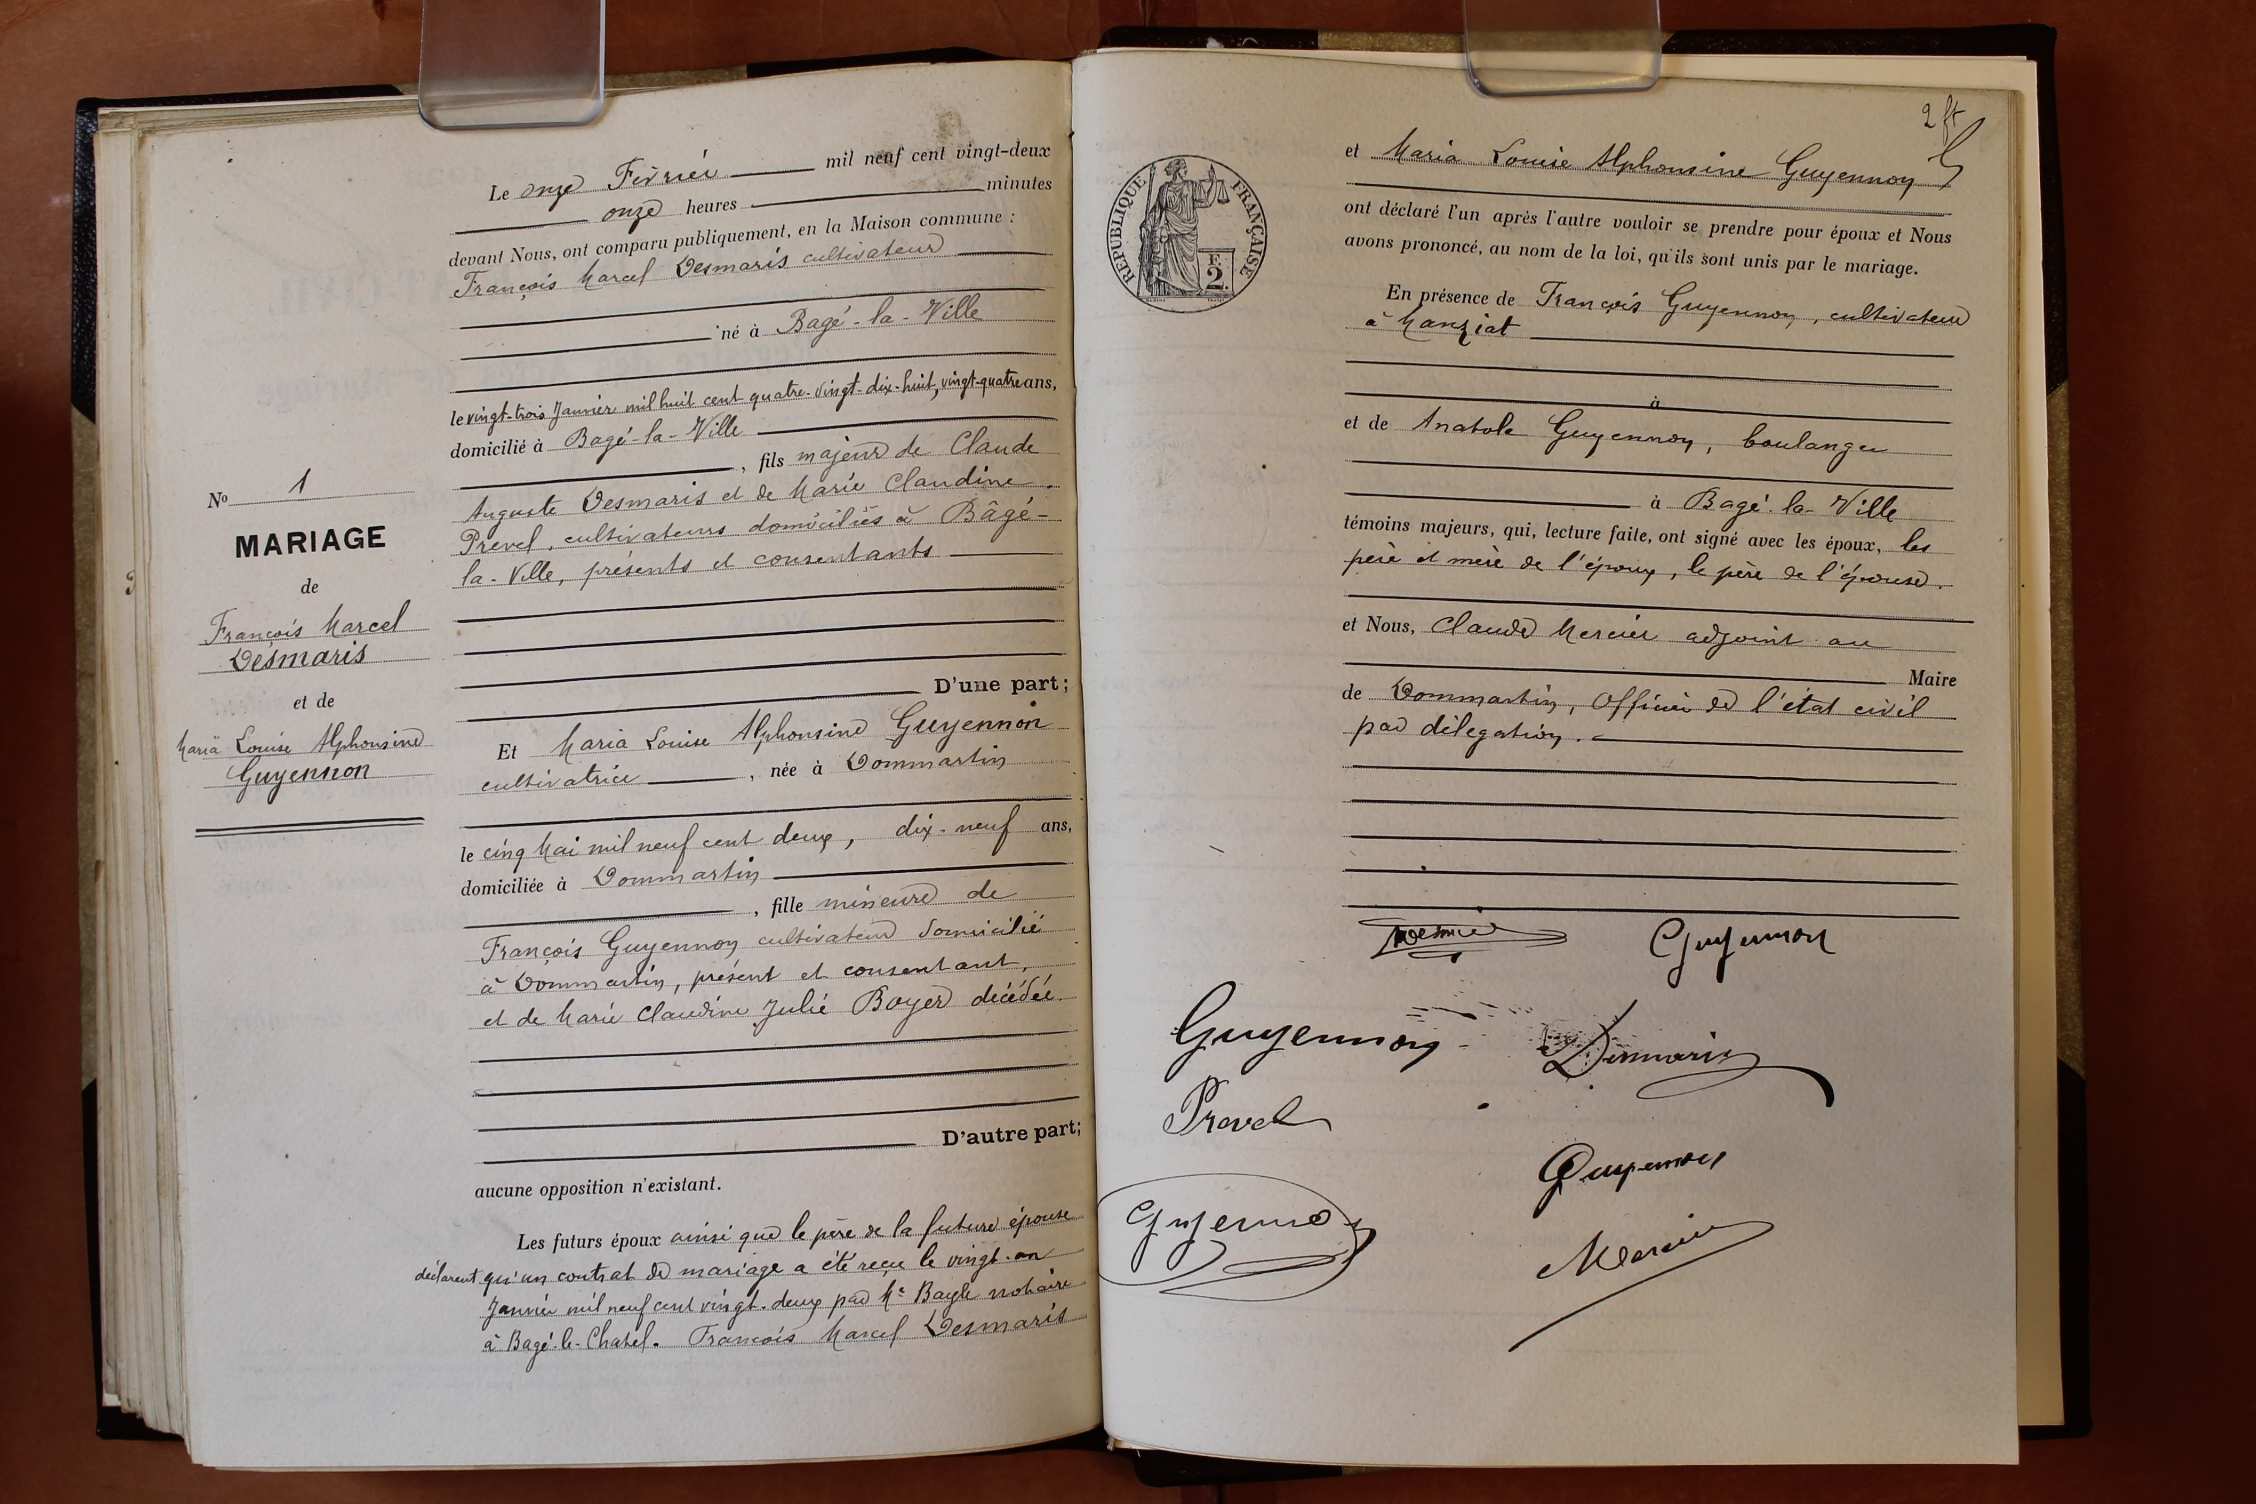 Le onze Février mil neuf cent vingt-deux
onze heures minutes
devant Nous, ont comparu publiquement, en la Maison commune :
François Marcel Desmaris cultivateur
né à Bagé-la-Ville
le vingt-trois Janvier mil huit cent quatre-vingt-dix-huit, vingt-quatre ans,
domicilié à Bagé-la-Ville
, fils majeur de Claude
Auguste Desmaris et de Marie Claudine
Prevel, cultivateurs domiciliés à Bâgé-
la-Ville, présents et consentants
D'une part;
No 1
MARIAGE
de
François Marcel
Desmaris
et de
Maria Louise Alphonsine
Guyennon
Et Maria Louise Alphonsine Guyennon
cultivatrice , née à Dommartin
le cinq Mai mil neuf cent deux, dix-neuf ans,
domiciliée à Dommartin
, fille mineure de
François Guyennon cultivateur domicilié
à Dommartin, présent et consentant,
et de Marie Claudine Julie Boyer décédée.
D'autre part;
aucune opposition n'existant.
Les futurs époux ainsi que le père de la future épouse
déclarent qu'un contrat de mariage a été reçu le vingt-un
Janvier mil neuf cent vingt-deux par Me Bayle notaire
à Bagé-le-Chatel. François Marcel Desmaris
2 ft
RÉPUBLIQUE FRANÇAISE
F.
2.
et Maria Louise Alphonsine Guyennon
ont déclaré l'un après l'autre vouloir se prendre pour époux et Nous
avons prononcé, au nom de la loi, qu'ils sont unis par le mariage.
En présence de François Guyennon, cultivateur
à Manziat
à
et de Anatole Guyennon, boulanger
à Bagé-la-Ville
témoins majeurs, qui, lecture faite, ont signé avec les époux, les
père et mère de l'époux, le père de l'épouse.
et Nous, Claude Mercier adjoint au
Maire
de Dommartin, Officier de l'état civil
par délégation.
Guyennon
Guyennon Desmaris
Prevel
Guyennon
Guyenno
Mercier